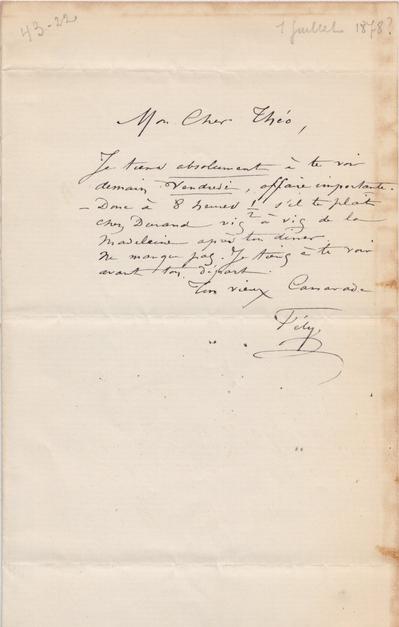 43-22
1 Juillet 1878?
Mon Cher Théo,
Je tiens absolument à te voir
demain Vendredi, affaire importante.
- Donc à 8 heures 1/2 s'il te plait
chez Durand vis à vis de la
Madeleine après ton dîner
Ne manque pas. Je tiens à te voir
avant ton départ.
Ton vieux Camarade